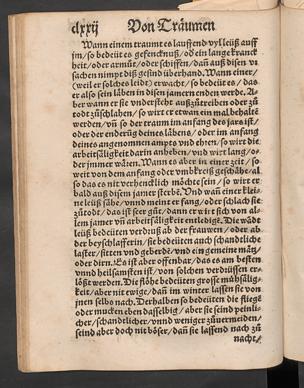 clxxij Von Träumen
Wann einem traumt es lauffend vyl leüß auff
jm / so bedeüt es gefencknuß / od ein lange kranck
heit / oder armůt / oder schiffen / dañ auß disen vr
sachen nimpt diß gesind überhand. Wann einer /
(weil er solches leidt) erwacht / so bedeüt es / das
er also sein läben in disen jamern enden werde. A
ber wann er sie vndersteht außzůtreiben oder zů
todt zůschlahen / so wirt er etwan mal behaltẽ
werden / vñ so der traum im anfang des jars ist /
oder der enderũg deines läbens / oder im anfang
deines angenommen ampts vnd ehren / so wirt die
arbeitsäligkeit darin anheben / vnd wirt lang / o-
der jmmer wären. Wenn es aber in einer zeit / so
weit von dem anfang oder vmbkreiß geschähe / al
so das es nit verhencklich möchte sein / so wirt er
bald auß disem jamer strebẽ. Vnd wañ einer klei-
ne leüß sähe / vnnd meint er fang / oder schlach sie
zůtodt / das ist seer gůt / dann er wirt sich von al-
lem jamer vñ arbeitsäligkeit entledigẽ. Die wädt
leüß bedeüten verdruß ab der frauwen / oder ab
der beyschlafferin / sie bedeüten auch schandtliche
laster / sitten vnd geberdẽ / vnd ein gemeine mätz /
oder dirn. Es ist aber offenbar / das es am bestẽ
vnnd heilsamsten ist / von solchen verdrüssen er-
lößt werden. Die flöhe bedeüten grosse můhsälig-
keit / aber nit ewige / dañ im winter lassen sie von
jnen selbs nach. Derhalben so bedeüten die fliegẽ
oder mucken eben dasselbig / aber sie seind peinli-
cher / schandtlicher / vnnd weniger zůuermeiden /
seind aber doch nit böser / dañ sie lassend nach zů
nacht /